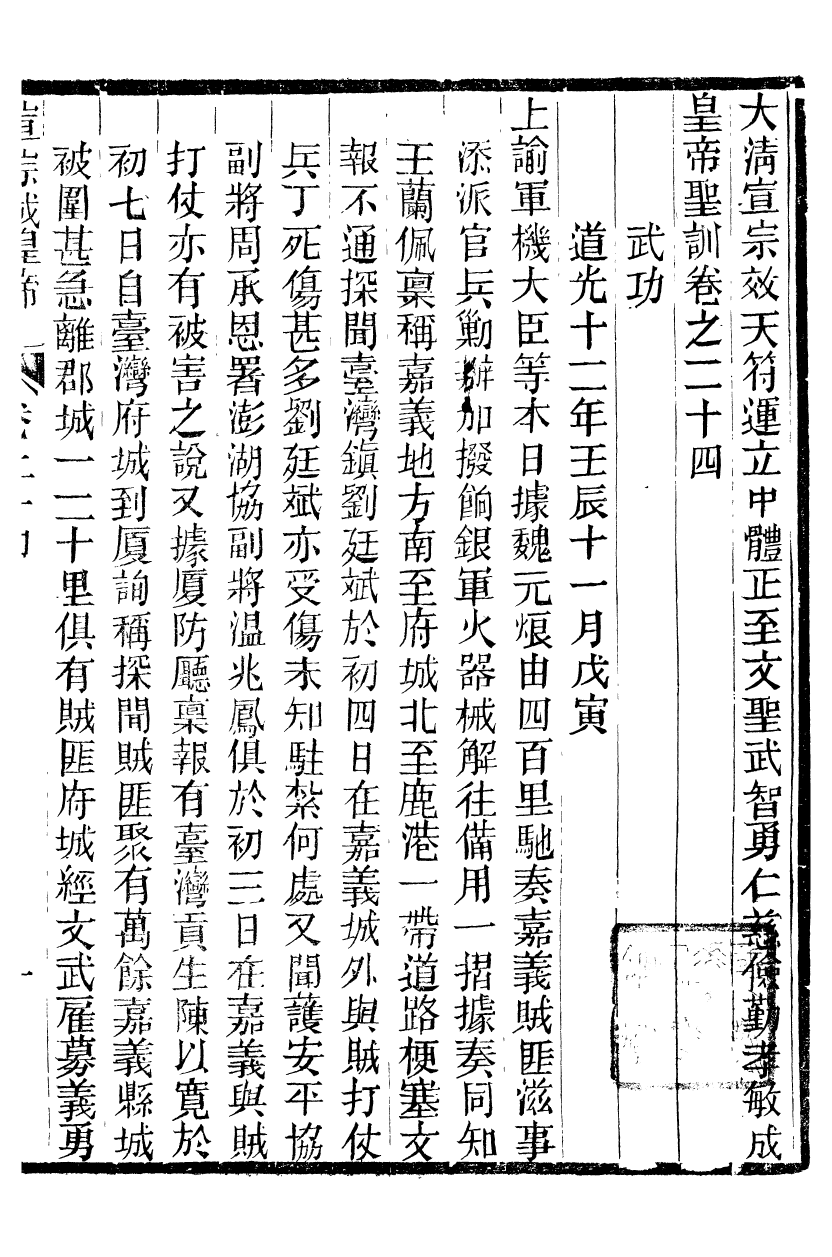 大淸宣宗效天符運立中體正至文聖武智勇仁慈儉勤孝敏成
皇帝聖訓卷之二十四
武功
道光十二年壬辰十一月戊寅
上諭軍機大臣等本日據魏元烺由四百里馳奏嘉義賊匪滋事
添派官兵勦辦加撥餉銀軍火器械解往備用一摺據奏同知
王蘭佩稟稱嘉義地方南至府城北至鹿港一帶道路梗塞文
報不通探聞臺灣鎮劉廷斌於初四日在嘉義城外與賊打仗
兵丁死傷甚多劉廷斌亦受傷未知駐紮何處又聞護安平協
副將周承恩署澎湖協副將溫兆鳳俱於初三日在嘉義與賊
打仗亦有被害之說又據廈防廳稟報有臺灣貢生陳以寬於
初七日自臺灣府城到廈詢稱探聞賊匪聚有萬餘嘉義縣城
被圍甚急離郡城一二十里俱有賊匪府城經文武雇募義勇
宣宗成皇帝 卷二十四 一